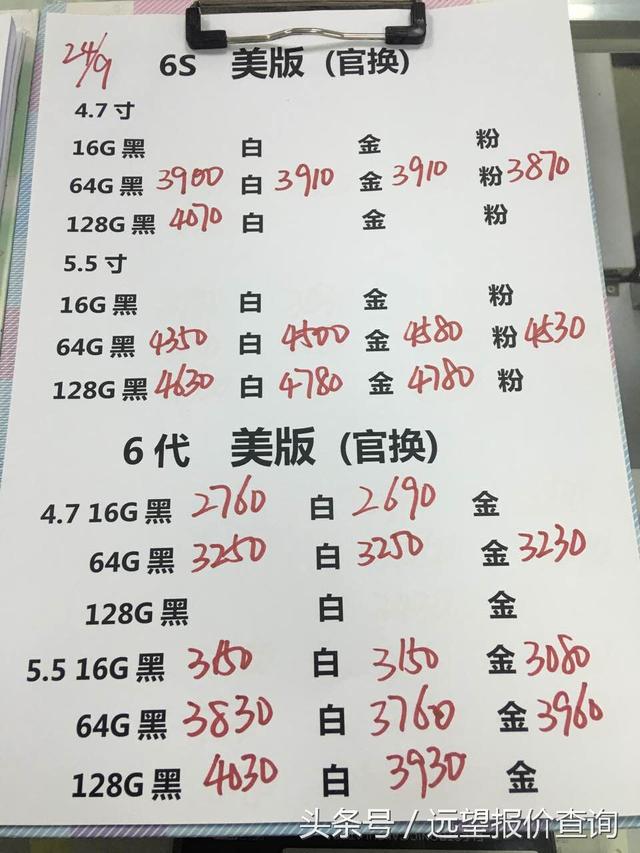 24/9 6S 美版（官换）
4.7 寸
16G 黑 白 金 粉
64G 黑 3900 白 3910 金 3910 粉 3870
128G 黑 4070 白 金 粉
5.5 寸
16G 黑 白 金 粉
64G 黑 4350 白 4500 金 4580 粉 4530
128G 黑 4630 白 4780 金 4780 粉
6 代 美版（官换）
4.7 16G 黑 2760 白 2690 金
64G 黑 3250 白 3250 金 3230
128G 黑 白 金
5.5 16G 黑 3150 白 3150 金 3080
64G 黑 3830 白 3760 金 3960
128G 黑 4030 白 3930 金
头条号 / 远望报价查询